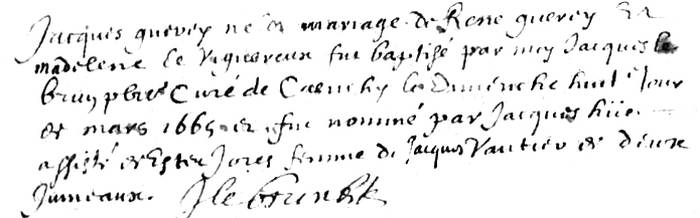 Jacques guerey né du mariage de René guerey et
madelene le vigoureux fut baptisé par moy Jacques le
brun pbre Curé de le Dimenche huit e Jour
de mars 1665 et fut nommé par Jacques hüe
assisté d'Ester Jores femme de Jacques Vautier et deux
jumeaux. J le brun